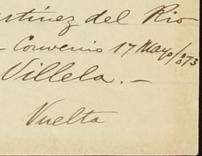 artinez del Rio
- Convenio 17 Mayo/873
Villela. -
Vuelta